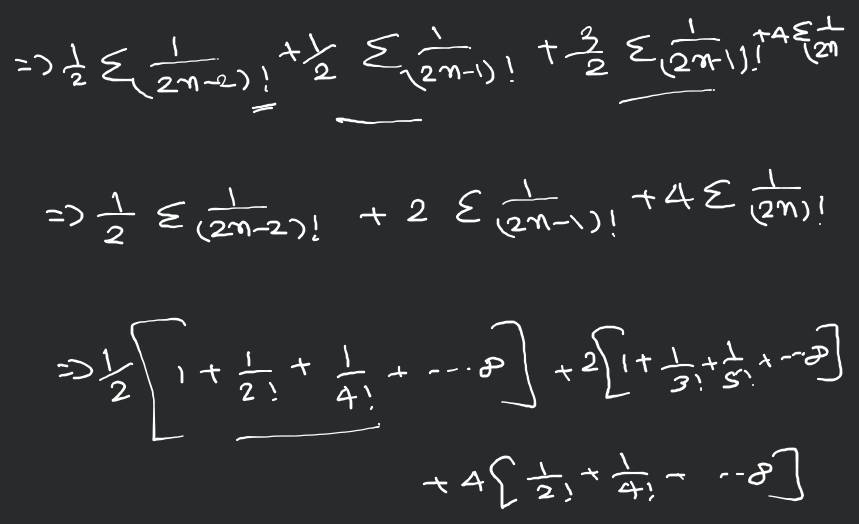 => 1/2 Σ 1/(2n-2)! + 1/2 Σ 1/(2n-1)! + 3/2 Σ 1/(2n-1)! + 4 Σ 1/(2n
=> 1/2 Σ 1/(2n-2)! + 2 Σ 1/(2n-1)! + 4 Σ 1/(2n)!
=> 1/2 [1 + 1/2! + 1/4! + ---∞] + 2[1 + 1/3! + 1/5! + --∞]
+ 4[1/2! + 1/4! - --∞]